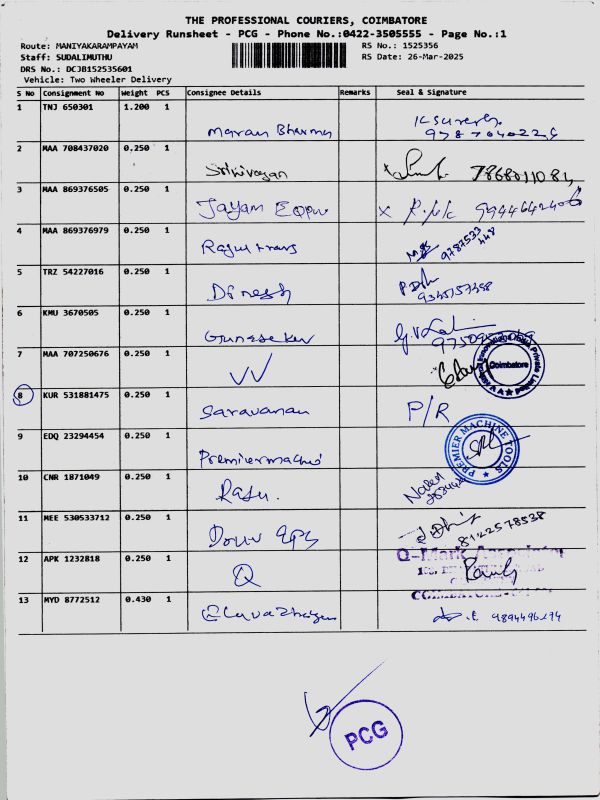 THE PROFESSIONAL COURIERS, COIMBATORE
Delivery Runsheet - PCG - Phone No.:0422-3505555 - Page No.:1
Route: MANIYAKARAMPAYAM RS No.: 1525356
Staff: SUDALIMUTHU RS Date: 26-Mar-2025
DRS No.: DCJB152535601
Vehicle: Two Wheeler Delivery
S No Consignment No Weight PCS Consignee Details Remarks Seal & Signature
1 TNJ 650301 1.200 1
K Suresh
2 MAA 708437020 0.250 1
Srinivasan
3 MAA 869376505 0.250 1
Jayam X 9944642406
4 MAA 869376979 0.250 1
9787533448
5 TRZ 54227016 0.250 1
Dinesh
6 KMU 3670505 0.250 1
Gunasekar
7 MAA 707250676 0.250 1
VV Coimbatore
8 KUR 531881475 0.250 1
Saravanan P/R
9 EDQ 23294454 0.250 1
Premiermachi PREMIER MACHINE TOOLS
10 CNR 1871049 0.250 1
Rasu. Naren
11 MEE 530533712 0.250 1
8122578538
12 APK 1232818 0.250 1
Q Q-Mark Associates
COIMBATORE
13 MYD 8772512 0.430 1
Elavazhagan
PCG